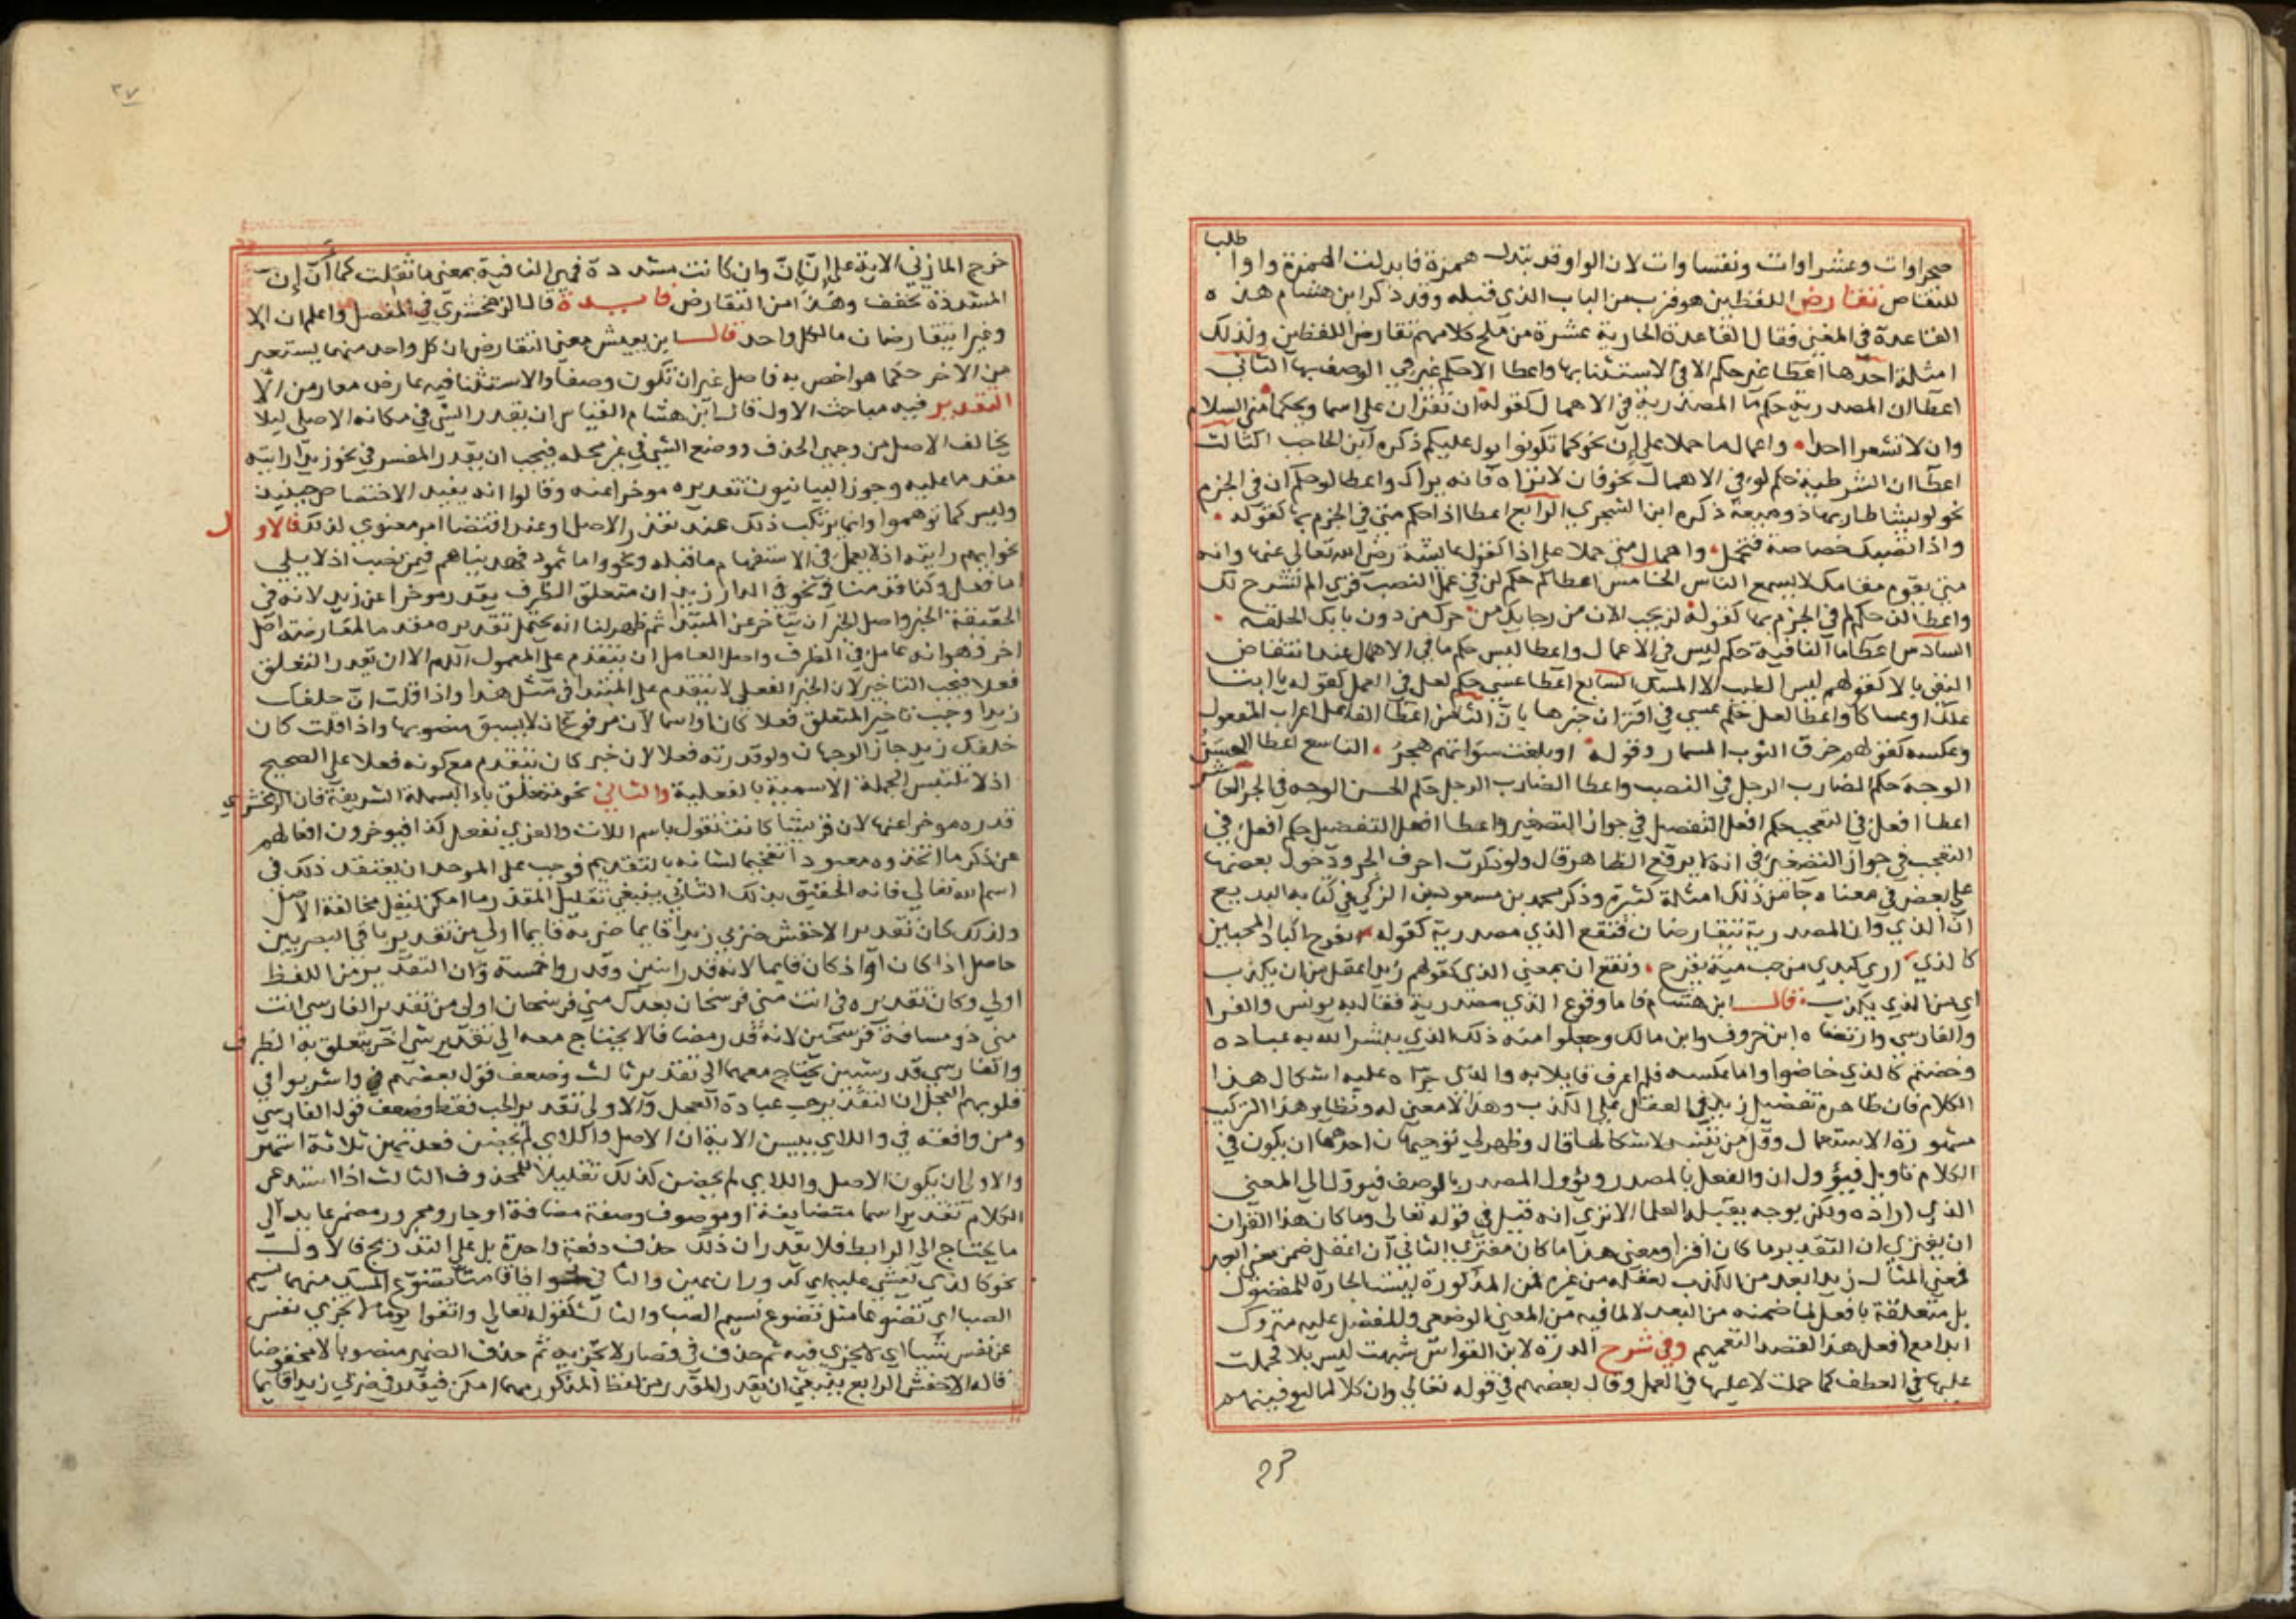 طلبا
صحراوات وعشراوات ونفساوات لان الواو قد تبدل همزة فابدلت الهمزة واوا
للتقاص تقارض اللفظين هو قريب من الباب الذي قبله وقد ذكر ابن هشام هذه
القاعدة في المغني فقال القاعدة الحادية عشرة من ملح كلامهم تقارض اللفظين ولذلك
امثلة احدها اعطا غير حكم الا في الاستثنا بها واعطا الا حكم غير في الوصف بها الثاني
اعطا ان المصدرية حكم ما المصدرية في الاهمال كقوله ان تقران على اسما ويحكما مني السلام
وان لا تشعرا احدا واعمال ما حملا على ان نحو كما تكونوا يول عليكم ذكره ابن الحاجب الثالث
اعطا ان الشرطية حكم لو في الاهمال نحو فان لا تراه فانه يراك واعطا لو حكم ان في الجزم
نحو لو يشا طار بها ذو ميعة ذكره ابن الشجري الرابع اعطا اذا حكم متى في الجزم بها كقوله
واذا تصبك خصاصة فتحمل واهمال متى حملا على اذا كقول عايشة رضي الله تعالى عنها وانه
متى يقوم مقامك لا يسمع الناس الخامس اعطا لم حكم لن في عمل النصب قري الم نشرح لك
واعطا لن حكم لم في الجزم بها كقوله لن يخب الان من رجايك من حرك من دون بابك الحلقه
السادس اعطا ما النافية حكم ليس في الاعمال واعطا ليس حكم ما في الاهمال عند انتقاض
النفي بالا كقولهم ليس الطيب الا المسك السابع اعطا عسى حكم لعل في العمل كقوله يا ابتا
علك او عساكا واعطا لعل حكم عسى في اقتران خبرها بان الثامن اعطا الفاعل اعراب المفعول
وعكسه كقولهم خرق الثوب المسمار وقوله او بلغت سواتهم هجر التاسع اعطا الحسن
الوجه حكم الضارب الرجل في النصب واعطا الضارب الرجل حكم الحسن الوجه في الجر العاشر
اعطا افعل في التعجب حكم افعل التفضيل في جواز التصغير واعطا افعل التفضيل حكم افعل في
التعجب في جواز التصغير في انه لا يرفع الظاهر قال ولو ذكرت احرف الجر ودخول بعضها
على بعض في معناه جا من ذلك امثلة كثيرة وذكر محمد بن مسعود بن الزكي في كتابه البديع
ان الذي وان المصدرية يتقارضان فتقع الذي مصدرية كقوله اتفرح اكباد المحبين
كالذي ارى كبدي من حب مية يقرح وتقع ان بمعنى الذي كقولهم زيد اعقل من ان يكذب
اي من الذي يكذب قال ابن هشام فاما وقوع الذي مصدرية فقال به يونس والفرا
والفارسي وارتضاه ابن خروف وابن مالك وجعلوا منه ذلك الذي يبشر الله به عباده
وخضتم كالذي خاضوا واما عكسه فلم اعرف قايلا به والذي جراه عليه اشكال هذا
الكلام فان ظاهره تفضيل زيد في العقل على الكذب وهذا لا معنى له ونظاير هذا التركيب
مشهورة الاستعمال وقل من يتنبه لاشكالها قال وظهر لي توجيهان احدهما ان يكون في
الكلام تاويل فيؤول ان والفعل بالمصدر ويؤول المصدر بالوصف فيؤول الى المعنى
الذي اراده ولكن بوجه يقبله العلما الا ترى انه قيل في قوله تعالى وما كان هذا القران
ان يفترى ان التقدير ما كان افترا ومعنى هذا ما كان مفترى الثاني ان افعل ضمن معنى ابعد
فمعنى المثال زيد ابعد من الكذب لعقله من غيره فمن المذكورة ليست الجارة للمفضول
بل متعلقة بافعل لما ضمنه من البعد لا لما فيه من المعنى الوضعي والمفضل عليه متروك
ابدا مع افعل هذا لقصد التعميم وفي شرح الدرة لابن القواس شبهت ليس بلا فحملت
عليها في العطف كما حملت لا عليها في العمل وقال بعضهم في قوله تعالى وان كلا لما ليوفينهم
خرج
٢٧
خرج المازني الاية على ان ان وان كانت مشددة فهي النافية بمعنى ما ثقلت كما ان ان
المشددة تخفف وهذا من التقارض فايدة قال الزمخشري في المفصل واعلم ان الا
وغيرا يتقارضان ما لكل واحد قال ابن يعيش معنى التقارض ان كل واحد منهما يستعير
من الاخر حكما هو اخص به فاصل غير ان تكون وصفا والاستثنا فيه عارض معار من الا
التقدير فيه مباحث الاول قال ابن هشام القياس ان يقدر الشي في مكانه الاصلي ليلا
يخالف الاصل من وجهين الحذف ووضع الشي في غير محله فيجب ان يقدر المفسر في نحو زيدا رايته
مقدما عليه وجوز البيانيون تقديره موخرا عنه وقالوا انه يفيد الاختصاص حينيذ
وليس كما توهموا وانما يرتكب ذلك عند تعذر الاصل او عند اقتضا امر معنوي لذلك فالاول
نحو ايهم رايته اذ لا يعمل في الاستفهام ما قبله ونحو واما ثمود فهديناهم فيمن نصب اذ لا يلي
اما فعل وكنا قدمنا في نحو في الدار زيد ان متعلق الظرف يقدر موخرا عن زيد لانه في
الحقيقة الخبر واصل الخبر ان يتاخر عن المبتدا ثم ظهر لنا انه يحتمل تقديره مقدما لمعارضة اصل
اخر وهو انه عامل في الظرف واصل العامل ان يتقدم على المعمول اللهم الا ان يقدر المتعلق
فعلا فيجب التاخير لان الخبر الفعلي لا يتقدم على المبتدا في مثل هذا واذا قلت ان خلفك
زيدا وجب تاخير المتعلق فعلا كان او اسما لان مرفوع ان لا يسبق منصوبها واذا قلت كان
خلفك زيد جاز الوجهان ولو قدرته فعلا لان خبر كان يتقدم مع كونه فعلا على الصحيح
اذ لا تلتبس الجملة الاسمية بالفعلية والثاني نحو متعلق باء البسملة الشريفة فان الزمخشري
قدره موخرا عنها لان قريشا كانت تقول باسم اللات والعزى نفعل كذا فيوخرون افعالهم
عن ذكر ما اتخذوه معبودا تفخيما لشانه بالتقديم فوجب على الموحد ان يعتقد ذلك في
اسم الله تعالى فانه الحقيق بذلك الثاني ينبغي تقليل المقدر ما امكن ليقل مخالفة الاصل
ولذلك كان تقدير الاخفش ضربي زيدا قايما ضربه قايما اولى من تقدير باقي البصريين
حاصل اذا كان او اذ كان قايما لانه قدر اثنين وقدروا خمسة وان التقدير من اللفظ
اولى وكان تقديره في انت مني فرسخان بعدك مني فرسخان اولى من تقدير الفارسي انت
مني ذو مسافة فرسخين لانه قدر مضافا لا يحتاج معه الى تقدير شي اخر يتعلق به الظرف
والفارسي قدر شيين يحتاج معهما الى تقدير ثالث وضعف قول بعضهم في واشربوا في
قلوبهم العجل ان التقدير حب عبادة العجل والاولى تقدير الحب فقط وضعف قول الفارسي
ومن وافقه في واللاي يئسن الاية ان الاصل واللاي لم يحضن فعدتهن ثلاثة اشهر
والاولى ان يكون الاصل واللاي لم يحضن كذلك تقليلا للمحذوف الثالث اذا استدعى
الكلام تقدير اسما متضايفة او موصوف وصفة مضافة او جار ومجرور مضمر عايد الى
ما يحتاج الى الرابط فلا يقدر ان ذلك حذف دفعة واحدة بل على التدريج فالاول
نحو كالذي يغشى عليه اي كدوران عين والثاني اذا قامتا تضوع المسك منهما نسيم
الصبا اي تضوعا مثل تضوع نسيم الصبا والثالث كقوله تعالى واتقوا يوما لا تجزي نفس
عن نفس شيا اي لا تجزي فيه ثم حذف في فصار لا تجزيه ثم حذف الضمير منصوبا لا مخفوضا
قاله الاخفش الرابع ينبغي ان يقدر المقدر من لفظ المذكور مهما امكن فيقدر في ضربي زيدا قايما